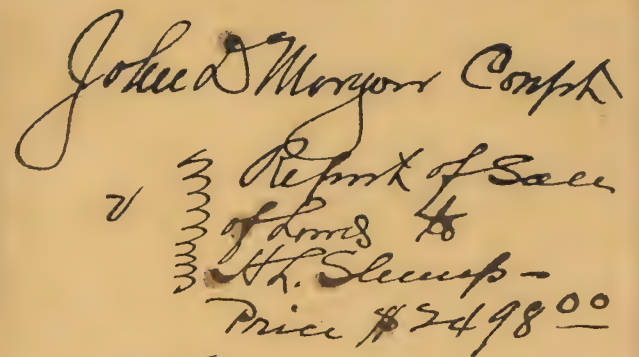 John D Morgan Complt
v Report of Sale
of Lands to
H L. Slemp -
Price $2498 00